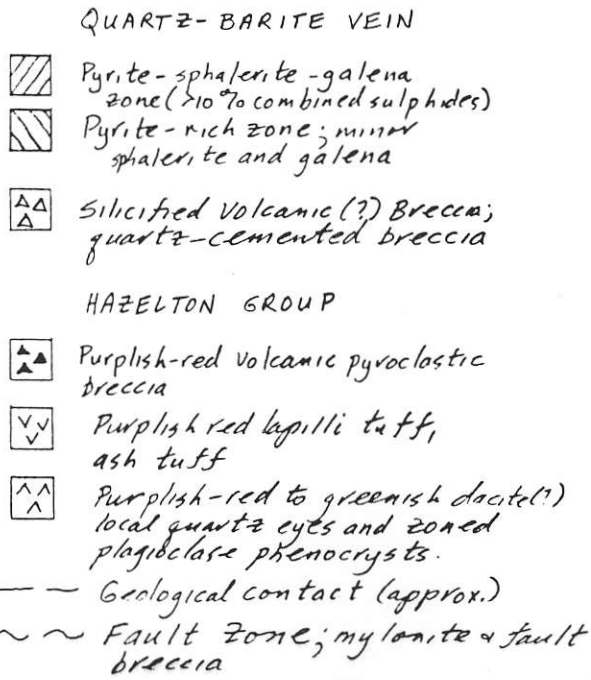 QUARTZ-BARITE VEIN
Pyrite-sphalerite-galena
zone (>10% combined sulphides)
Pyrite-rich zone; minor
sphalerite and galena
Silicified Volcanic (?) Breccia;
quartz-cemented breccia
HAZELTON GROUP
Purplish-red volcanic pyroclastic
breccia
Purplish red lapilli tuff,
ash tuff
Purplish-red to greenish dacite(?)
local quartz eyes and zoned
plagioclase phenocrysts.
Geological contact (approx.)
Fault Zone; mylonite & fault
breccia